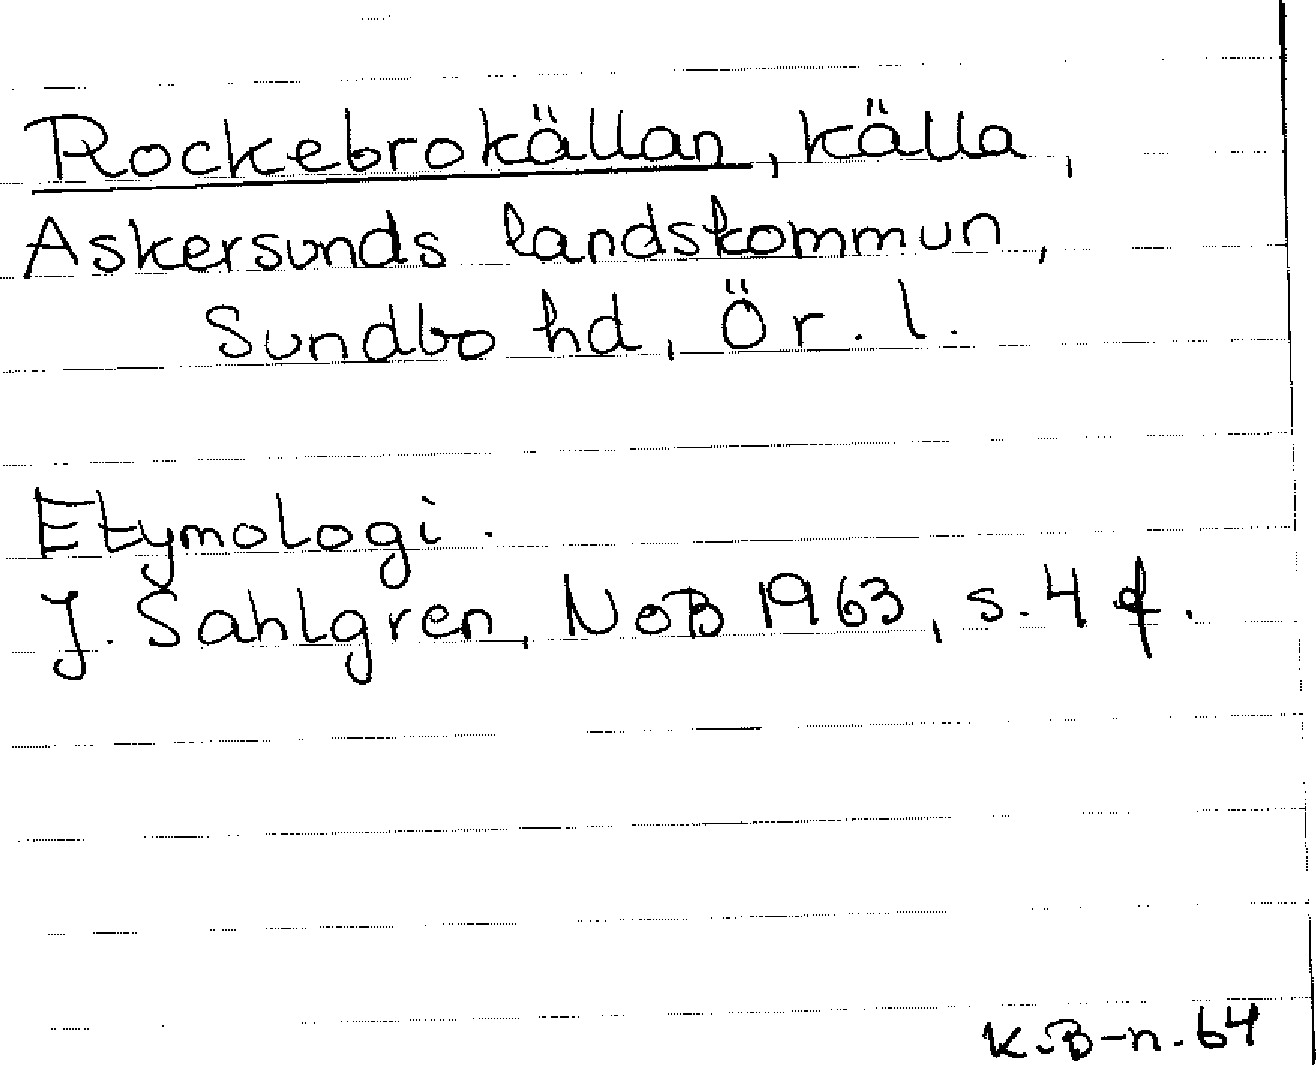 Rockebrokällan, källa,
Askersunds landskommun,
Sundbo hd, Ör. l.
Etymologi.
J. Sahlgren, NoB 1963, s. 4 f.
K.B-n. 64